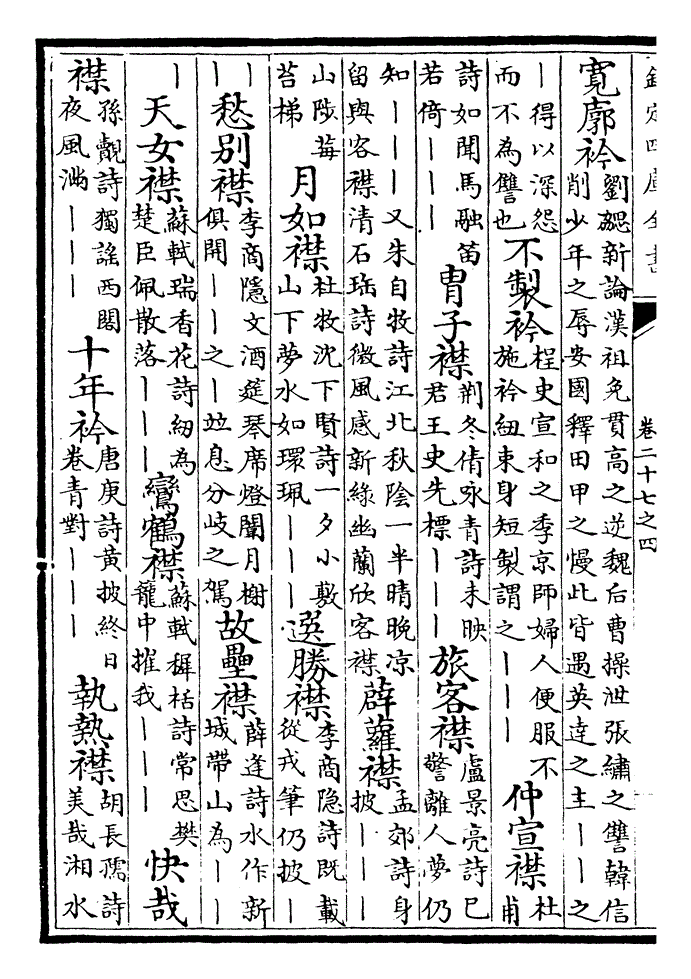 欽定四庫全書
卷二十七之四
寛廓衿
劉勰新論漢祖免貫高之逆魏后曹操泄張繡之讐韓信
削少年之辱安國釋田甲之慢此皆遇英達之主||之
|得以深怨
而不為讐也
不製衿
桯史宣和之季京師婦人便服不
施衿紐束身短製謂之|||
仲宣襟
杜
甫
詩如聞馬融笛
若倚|||
胄子襟
荆冬倩咏青詩未映
君王史先標|||
旅客襟
盧景亮詩已
警離人夢仍
知|||又朱自牧詩江北秋陰一半晴晚凉
留與客襟清石珤詩微風感新緑幽蘭欣客襟
薜蘿襟
孟郊詩身
披|||
山陟莓
苔梯
月如襟
杜牧沈下賢詩一夕小敷
山下夢水如環珮|||
選勝襟
李商隐詩既載
從戎筆仍披|
||
愁别襟
李商隱文酒筵琴席燈闌月榭
俱開||之|竝息分岐之駕
故壘襟
薛逢詩水作新
城帶山為||
|
天女襟
蘇軾瑞香花詩紉為
楚臣佩散落|||
鸞鶴襟
蘇軾樨栝詩常思樊
籠中摧我|||
快哉
襟
孫覿詩獨謡西閣
夜風滿|||
十年衿
唐庚詩黄披終日
卷青對|||
執熱襟
胡長孺詩
美哉湘水